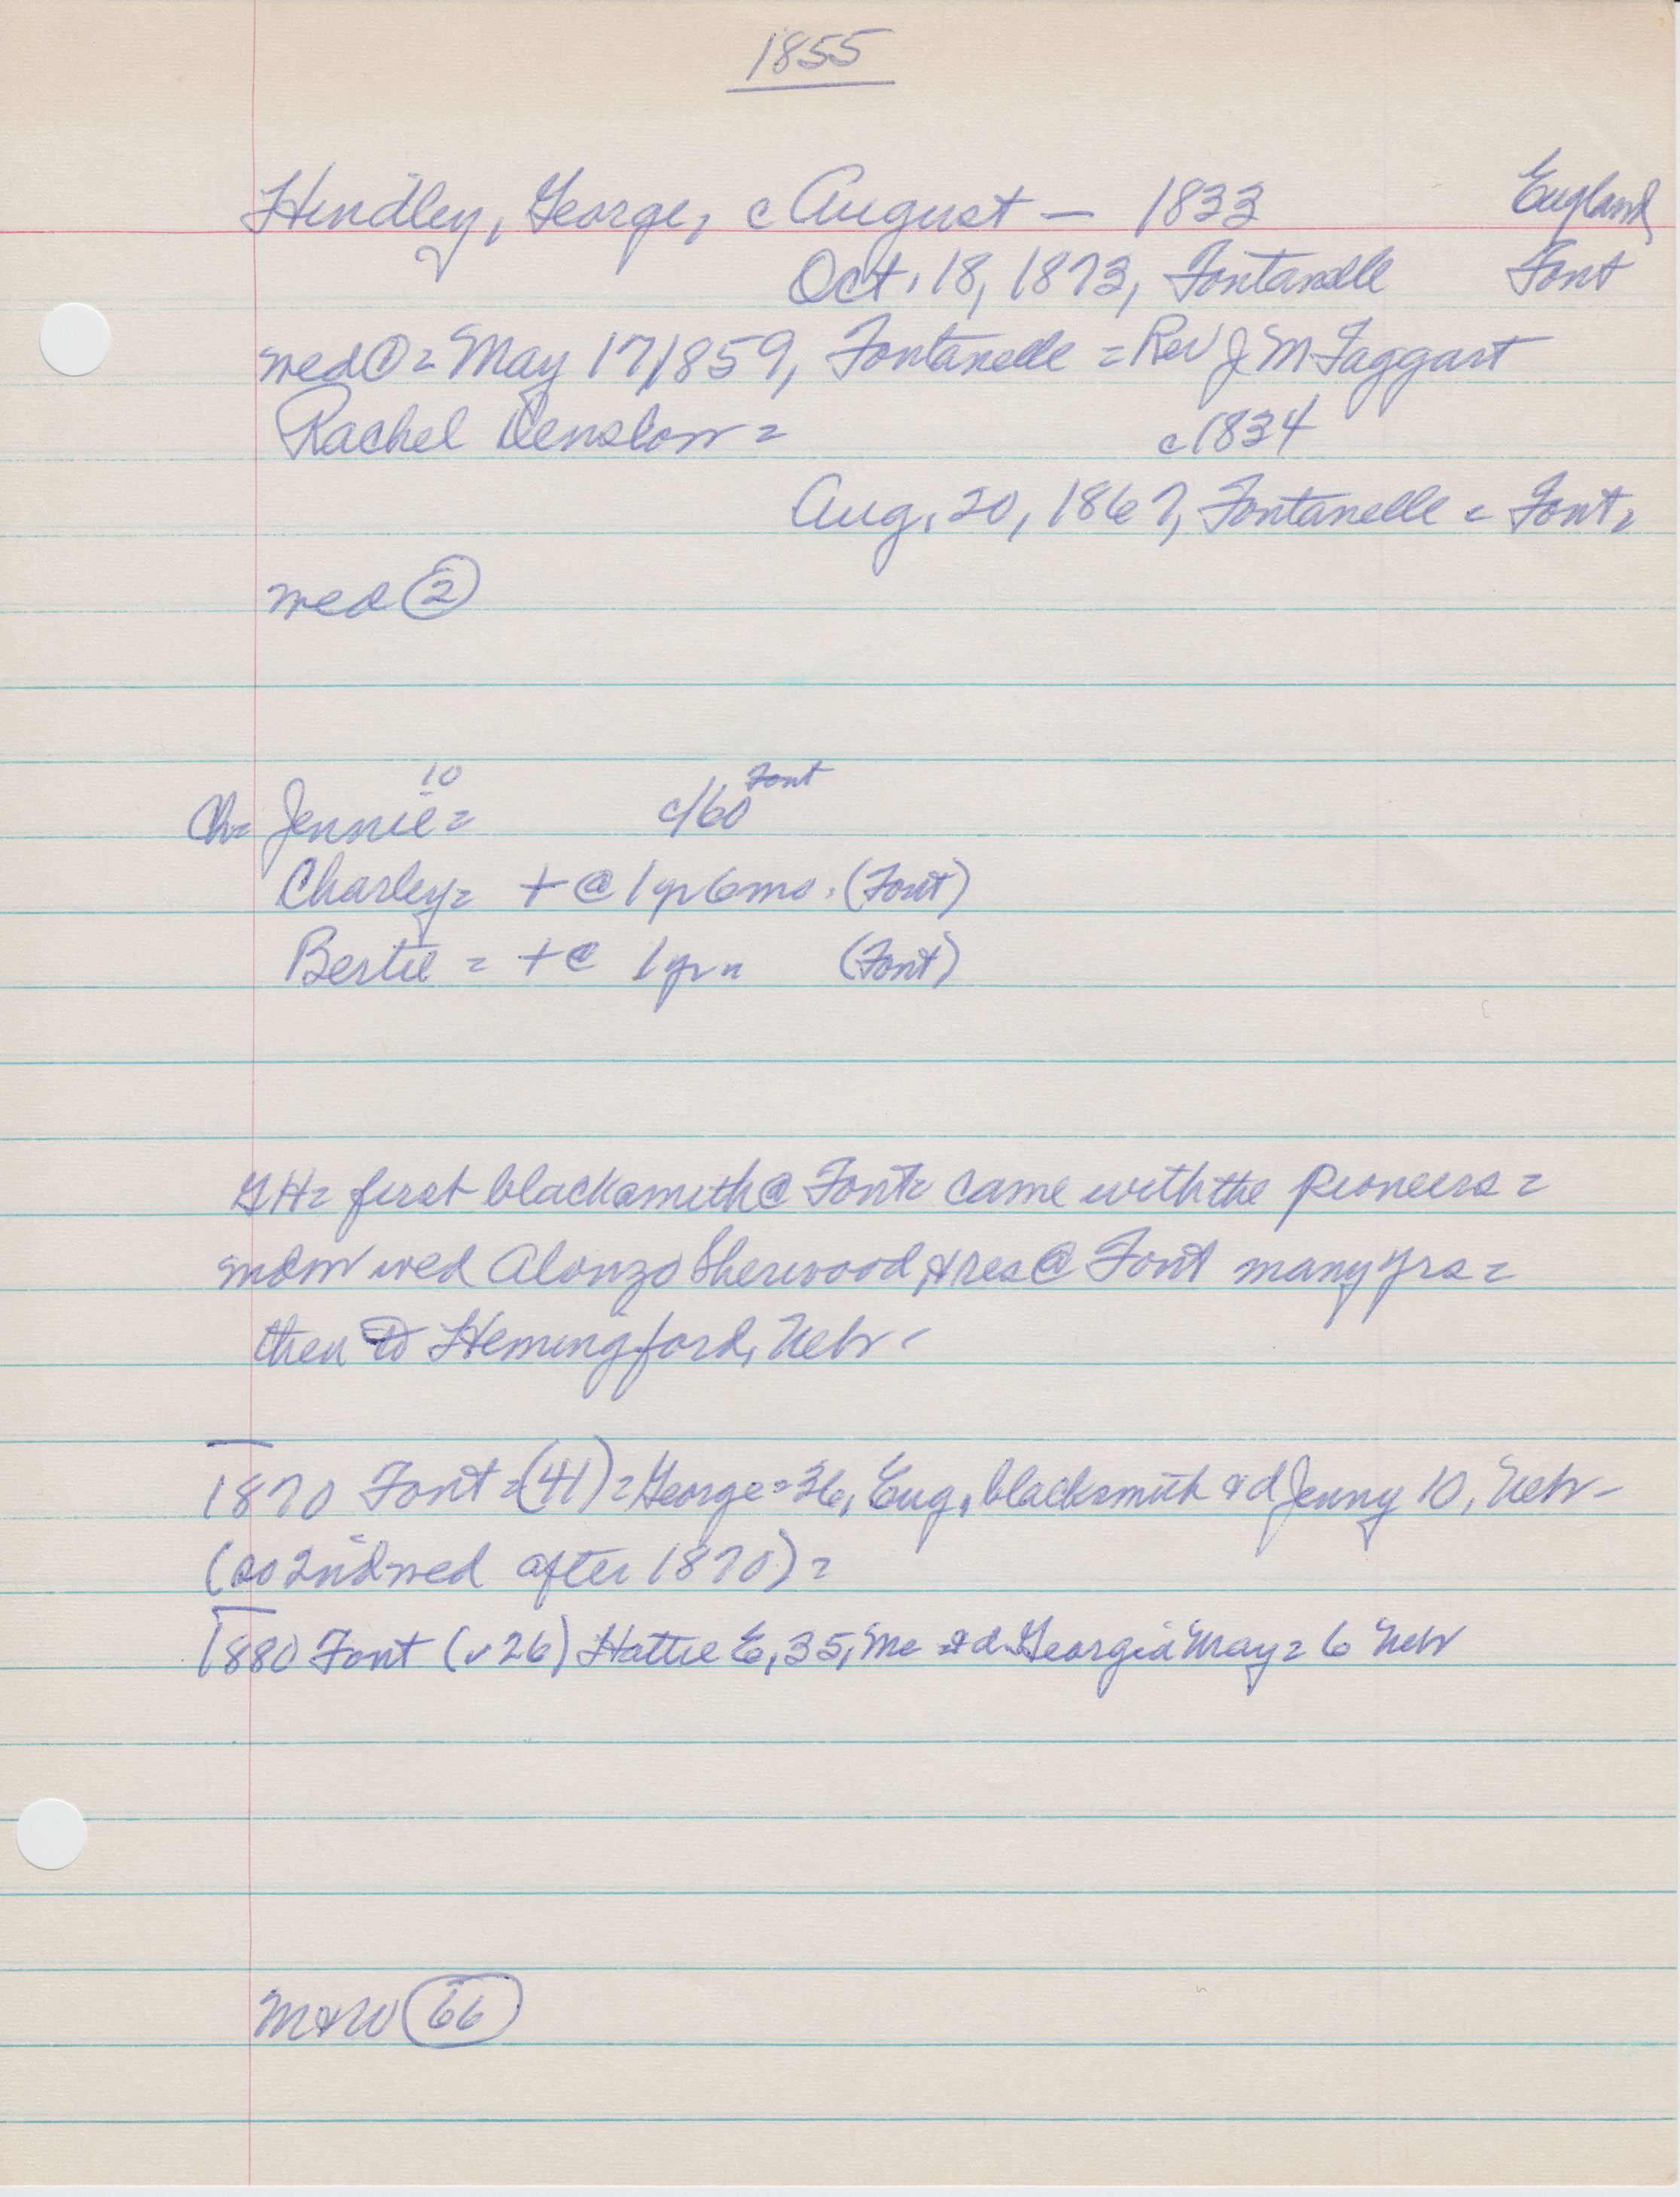 1855
Hindley, George, c August — 1833 England
Oct. 18, 1873, Fontanelle Font
wed ① = May 17 1859, Fontanelle = Rev J M Taggart
Rachel Denslow = c1834
Aug. 20, 1867, Fontanelle = Font =
wed ②
10
Ch = Jennie = c/60 Font
Charley = + @ 1 yr 6 mo. (Font)
Bertie = + @ 1 yr (Font)
GH = first blacksmith @ Font = came with the pioneers =
wed Alonzo Sherwood, & res @ Font many yrs =
then to Hemingford, Nebr
1870 Font = (41) = George = 36, Eng, blacksmith & d Jenny 10, Nebr -
(so 2nd wed after 1870) =
1880 Font (v 26) Hattie E, 35, Me & d Georgia May = 6 Nebr
M & W 66